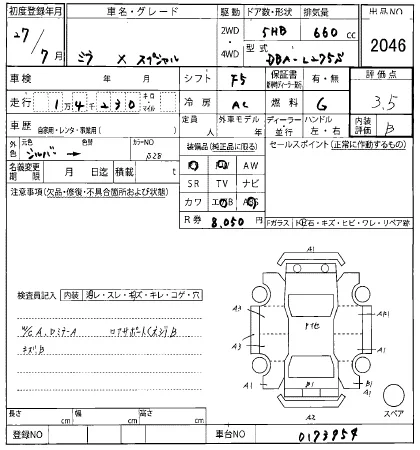 初度登録年月 車名・グレード 駆動 ドア数・形状 排気量 出品NO
27/7月 ミラ X スペシャル 2WD・4WD 5HB 660cc 2046
型式 DBA-L275S
車検 年 月 シフト F5 保証書 有・無 評価点
走行 1万4千230 キロ・マイル 冷房 AC 燃料 G 3.5
車歴 自家用・レンタ・事業用( ) 定員 人 外車モデル 年 ディーラー・並行 ハンドル 左・右 内装評価 B
外色 元色 シルバー → 色替 カラーNO S28 装備品(純正品に限る) セールスポイント(正常に作動するもの)
名義変更期限 月 日迄 積載 t
AW
SR TV ナビ
カワ エアB ABS
R券 8,050円
注意事項(欠品・修復・不具合箇所および状態)
Fガラス 飛石・キズ・ヒビ・ワレ・リペア跡
検査員記入 内装 汚レ・スレ・キズ・キレ・コゲ・穴
W/C A、
ロアサポート(メガ)B
キズB
A1
A3
A3
A1
トビ石
B1
A2
A1
B1
A1
スペア
長さ cm 幅 cm 高さ cm
登録NO 車台NO 0173954